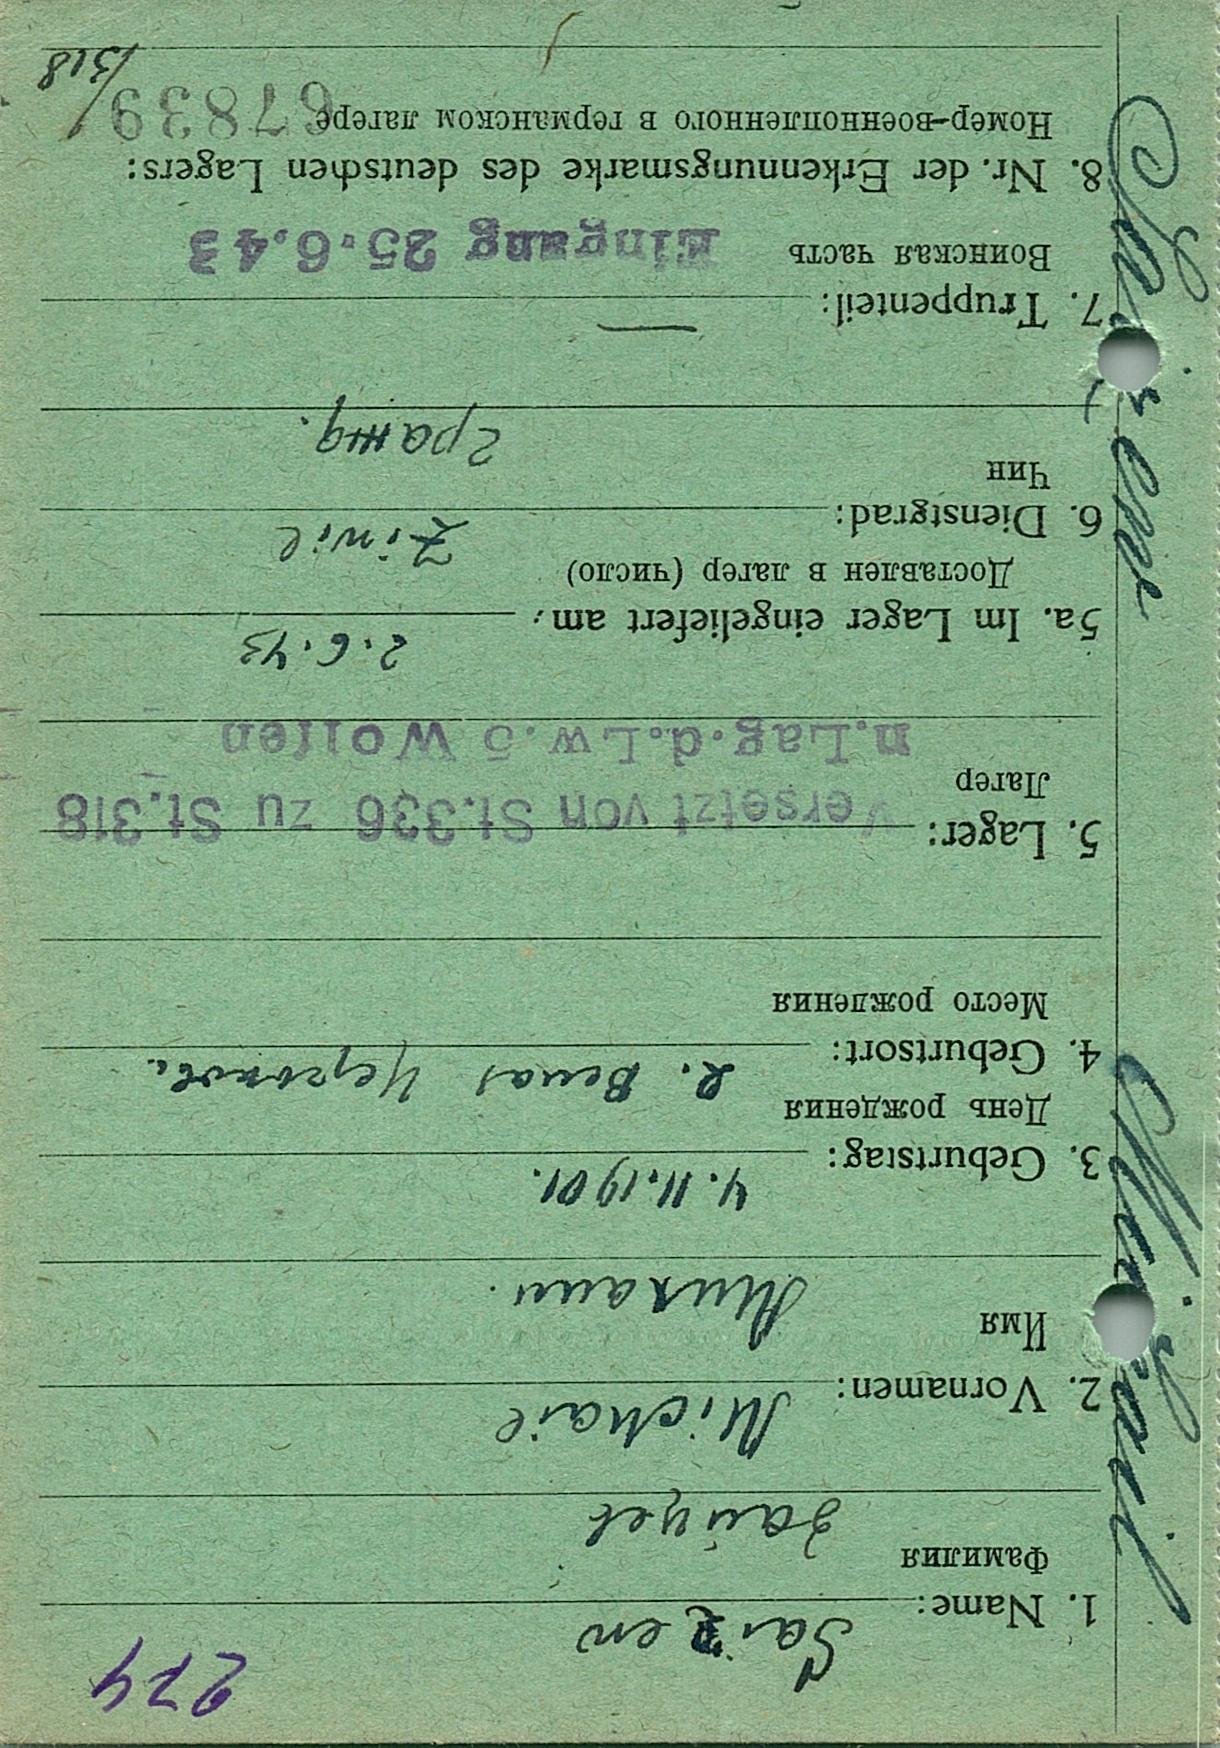 274
1. Name: Saizew
Фамилия Зайцев
2. Vornamen: Michail
Имя Михаил.
3. Geburtstag: 4.11.1901.
День рождения
4. Geburtsort:
Место рождения
5. Lager: Versetzt von St.336 zu St.318
Лагер n.Lag.d.Lw.5 Wolfen
2.6.43
5a. Im Lager eingeliefert am:
Доставлен в лагер (число) Zivil
6. Dienstgrad:
Чин гражд.
7. Truppenteil: —
Воинская часть Eingang 25.6.43
8. Nr. der Erkennungsmarke des deutschen Lagers:
Номер-военнопленного в германском лагере 67839/318
Michail